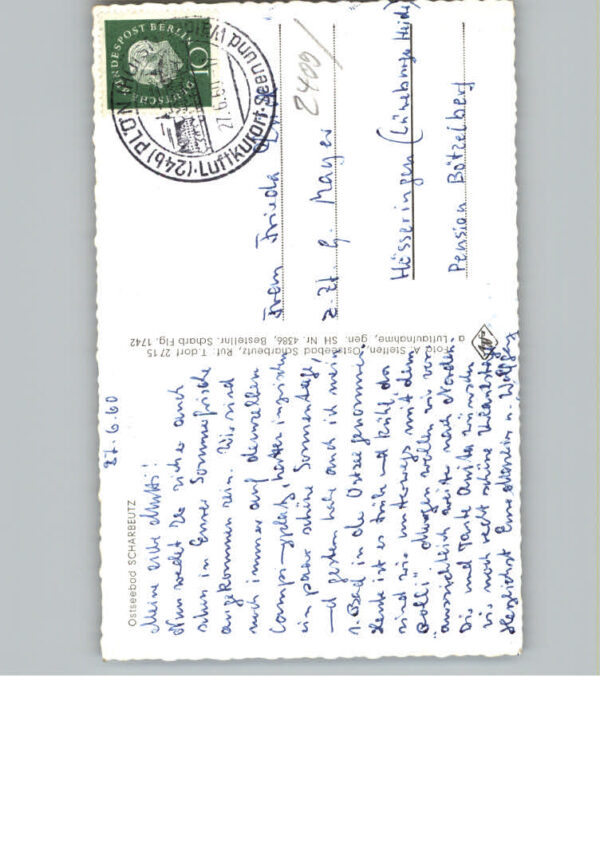 Ostseebad SCHARBEUTZ
27.6.60
Meine liebe Mutti!
Nun werdet Ihr sicher auch
schon in Eurer Sommerfrische
angekommen sein. Wir sind
noch immer auf demselben
Campingplatz, hatten inzwischen
ein paar schöne Sonnentage,
und gestern habe auch ich mein
1. Bad in die Ostsee genommen.
Heute ist es trüb und kühl, da
sind wir unterwegs mit dem
"Rolli". Morgen wollen wir vor-
aussichtlich weiter nach Norden.
Dir und Tante Anita wünschen
wir noch recht schöne Urlaubstage
Herzlichst Eure u. Wolfgang
Foto A. Steffen, Ostseebad Scharbeutz, Ruf: T.dorf 27 15
a Luftaufnahme, gen. SH Nr. 4386, Bestellnr. Scharb Flg. 1742
DEUTSCHE BUNDESPOST BERLIN
10
(24b) PLÖN
Luftkurort · Seen und
27.6.60
2409
Frau Frieda
z. Zt. G. Mayer
Hösseringen (Lüneburger Heide)
Pension Bötzelberg